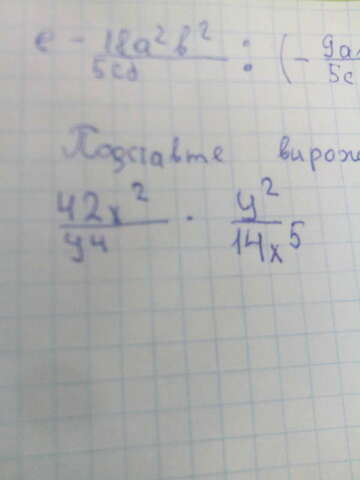 е - 18a²b² / 5cd : (- 9a / 5c
Подставте вираж
42x² / y⁴ · y² / 14x⁵